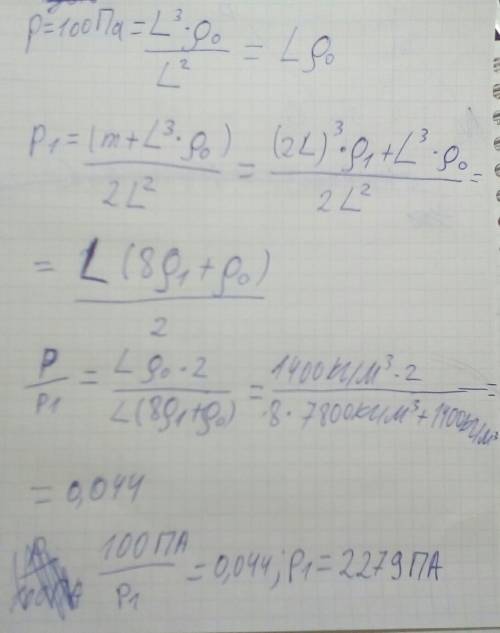 p=100Па=L³·ρ₀/L²=Lρ₀
p₁=(m+L³·ρ₀)/2L²=((2L)³·ρ₁+L³·ρ₀)/2L²=
=L(8ρ₁+ρ₀)/2
p/p₁=Lρ₀·2/L(8ρ₁+ρ₀)=1400кг/м³·2/8·7800кг/м³+1400кг/м³=
=0,044
100ПА/p₁=0,044; p₁=2279ПА